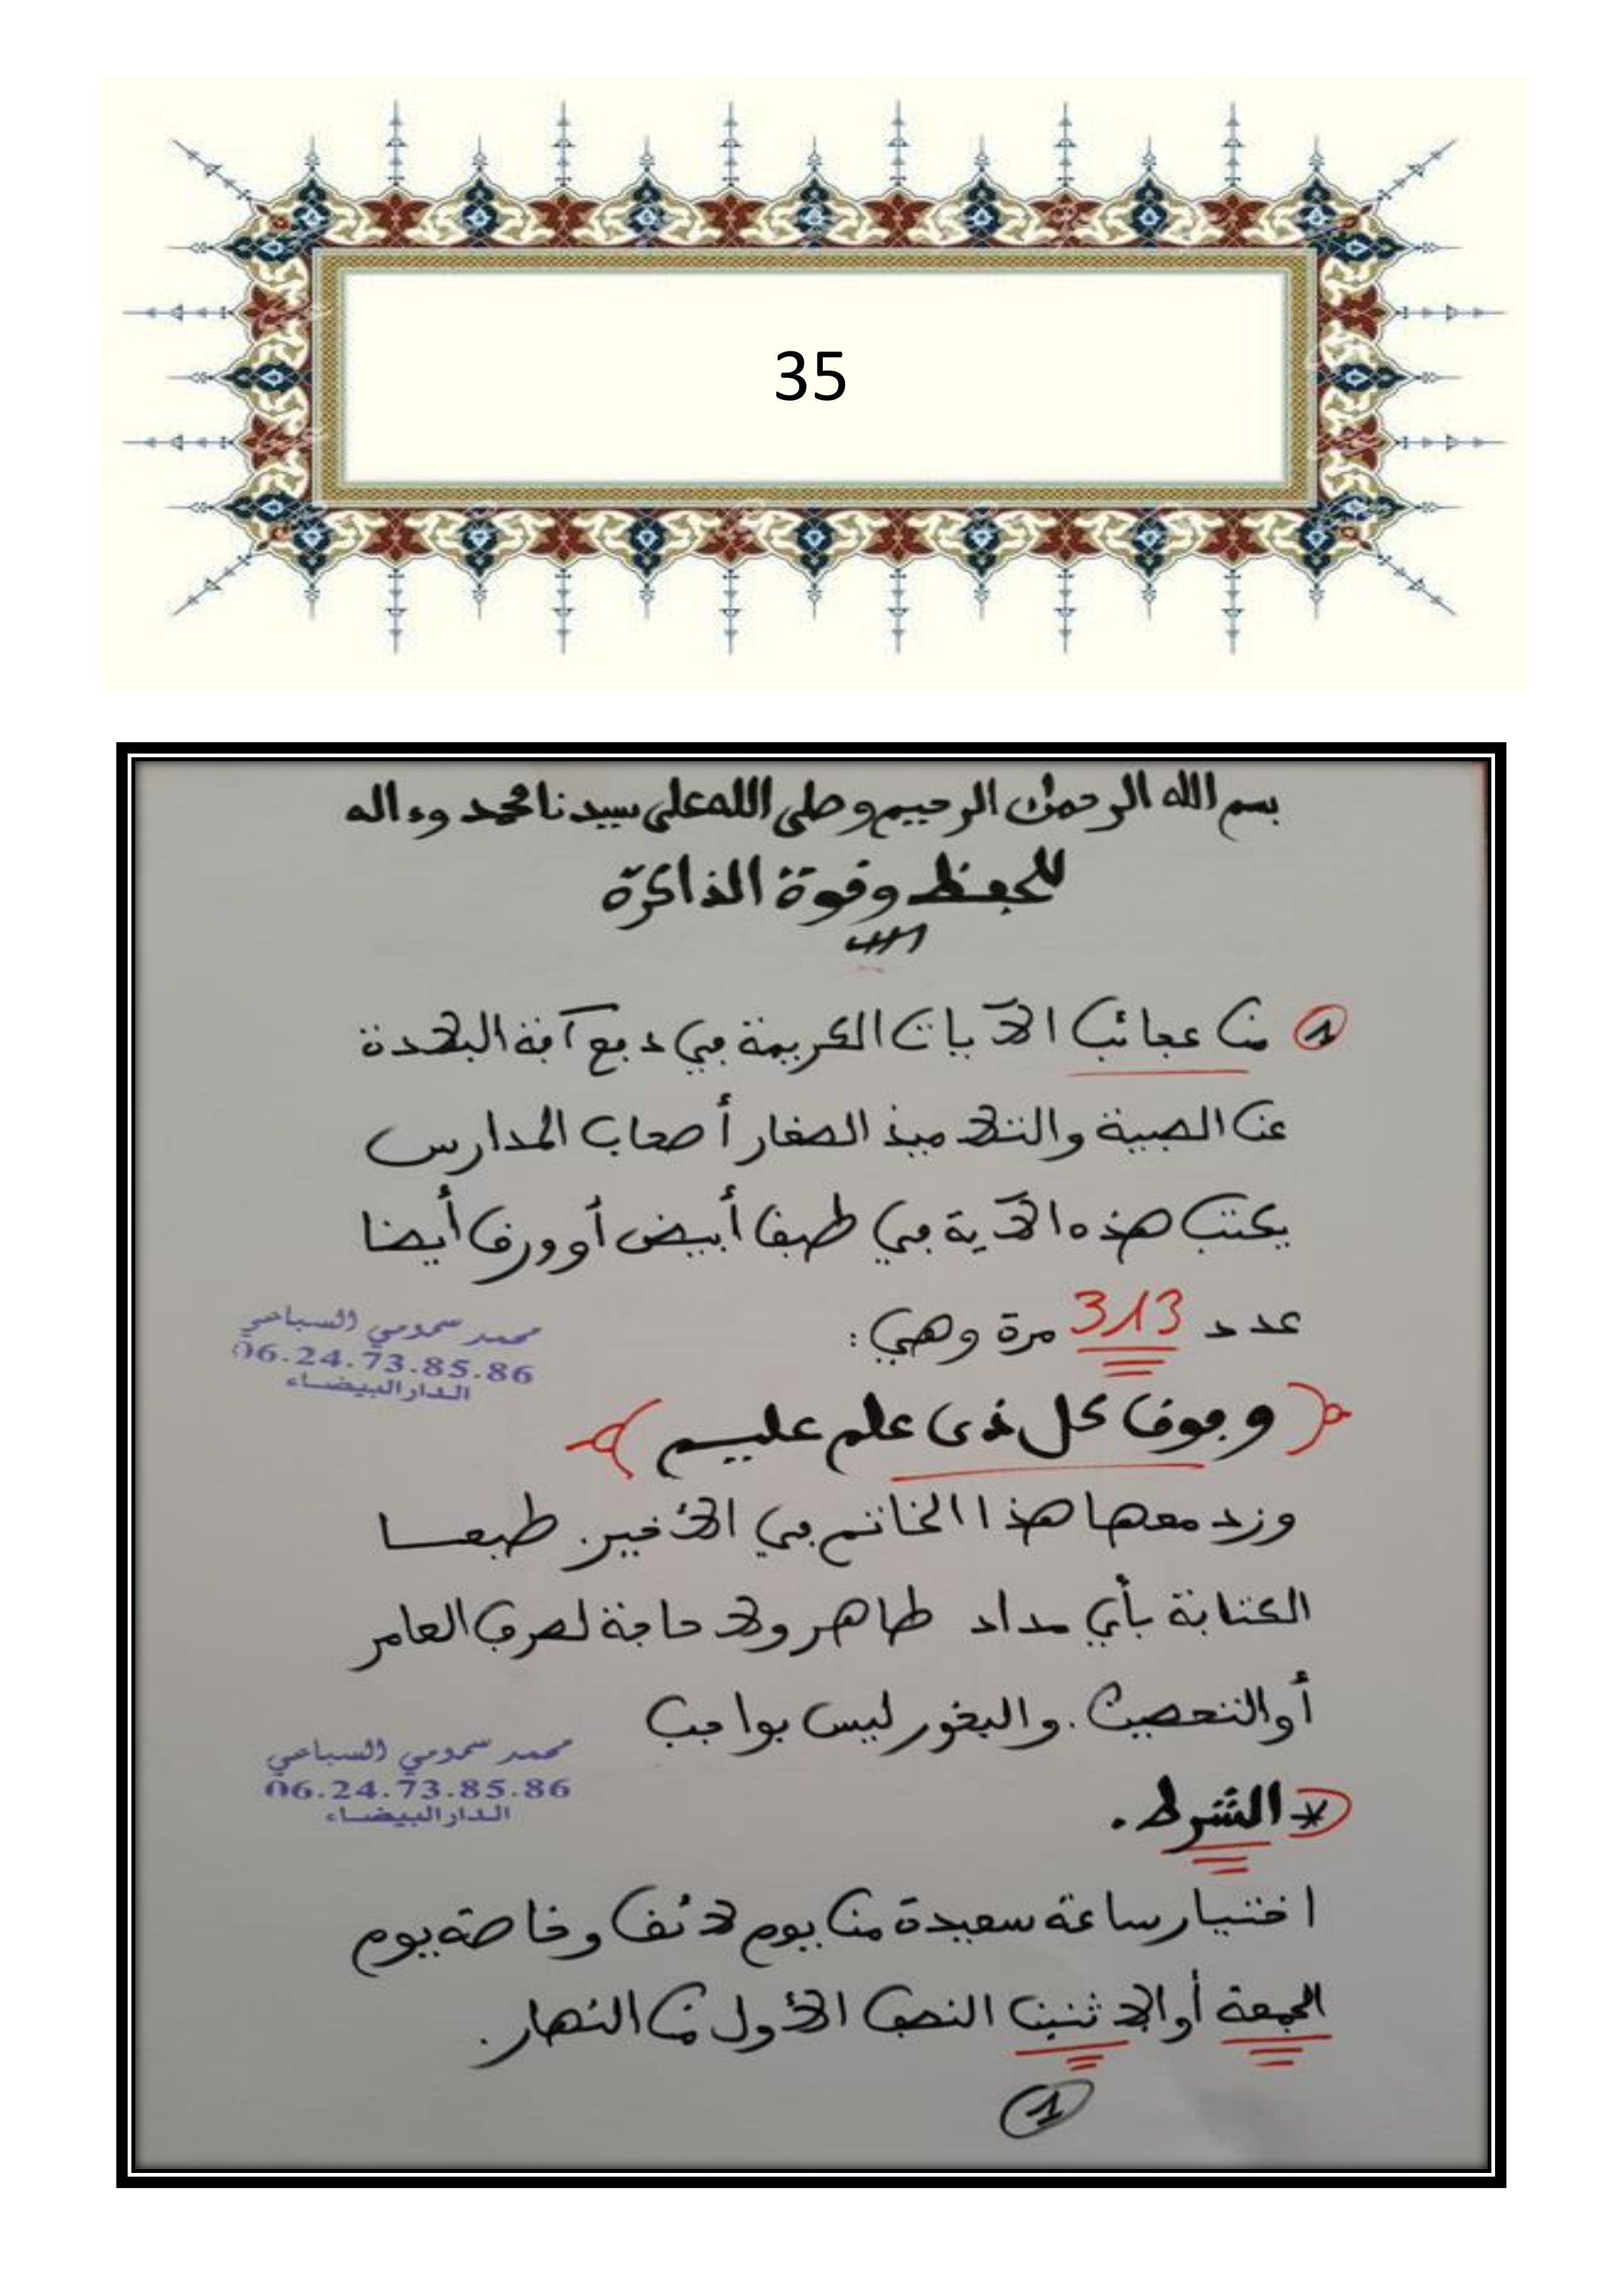 35
بسم الله الرحمن الرحيم وصلى الله على سيدنا محمد وءاله
للحفظ وقوة الذاكرة
1 من عجائب الآيات الكريمة في دفع آفة البلادة
عن الصبية والتلاميذ الصغار أصحاب المدارس
يكتب هذه الآية في طبق أبيض أو ورق أيضا
عدد 313 مرة وهي:
محمد سمومي السباعي
06.24.73.85.86
الدار البيضاء
وفوق كل ذي علم عليم
وزد معها هذا الخاتم في الأخير. طبعا
الكتابة بأي مداد طاهر ولا حاجة لصرف العامر
أو التحصين. والبخور ليس بواجب
محمد سمومي السباعي
06.24.73.85.86
الدار البيضاء
* الشرط.
اختيار ساعة سعيدة من يوم لائق وخاصة يوم
الجمعة أو الاثنين النصف الأول من النهار.
1